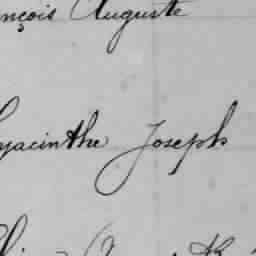 nçois Auguste
yacinthe Joseph